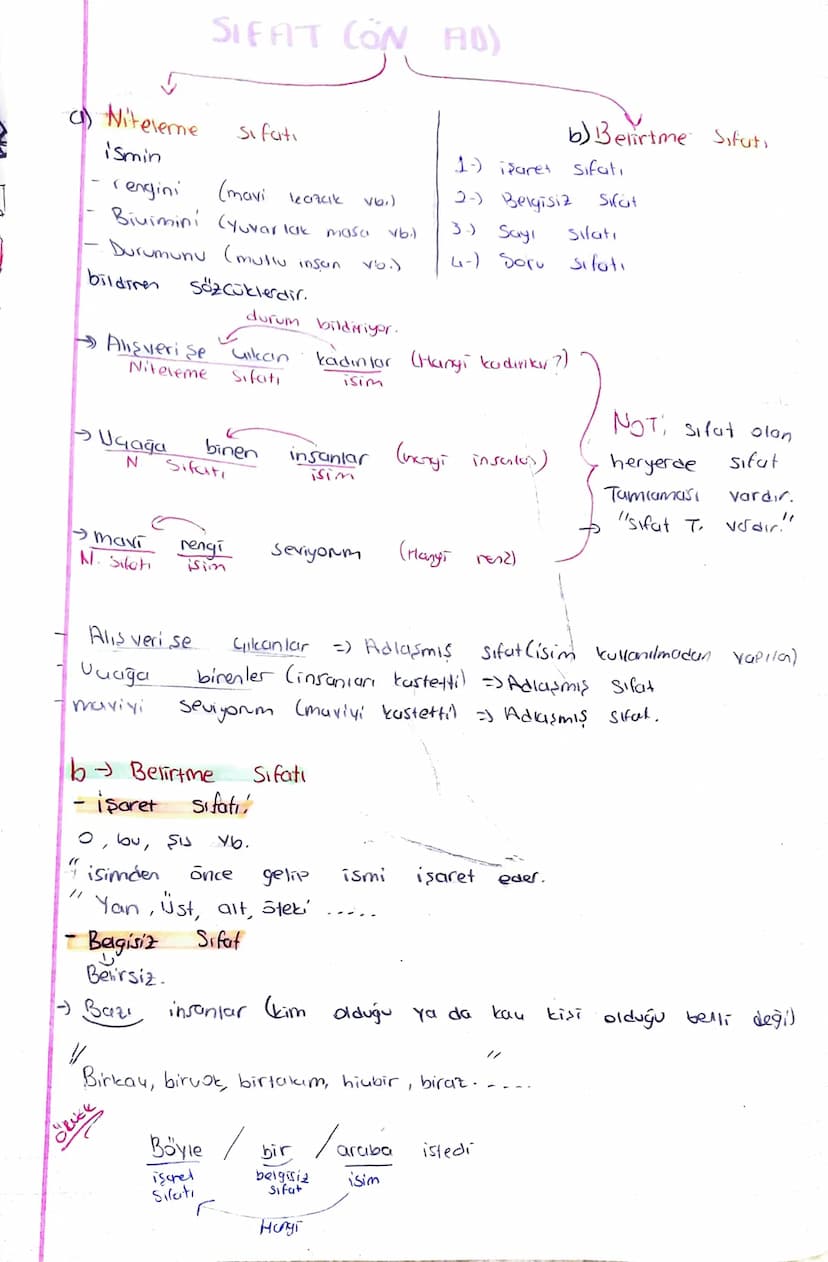 SIFAT (ÖN AD)
a) Niteleme sıfatı
ismin
- rengini (mavi kazak vb.)
- Biçimini (yuvarlak masa vb.)
- Durumunu (mutlu insan vb.)
bildiren sözcüklerdir.
b) Belirtme Sıfatı
1-) işaret sıfatı
2-) Belgisiz Sıfat
3-) Sayı sıfatı
4-) Soru sıfatı
durum bildiriyor.
→ Alışverişe çıkan kadınlar (Hangi kadınlar?)
Niteleme sıfatı isim
→ Uçağa binen insanlar (hangi insanlar)
N sıfatı isim
→ mavi rengi seviyorum (Hangi renk)
N. sıfatı isim
NOT; sıfat olan
heryerde sıfat
Tamlaması vardır.
→ "sıfat T. vardır."
- Alışverişe çıkanlar => Adlaşmış sıfat (isim kullanılmadan yapılan)
- Uçağa binenler (insanları kastetti) => Adlaşmış sıfat
- maviyi seviyorum (maviyi kastetti) => Adlaşmış sıfat.
b → Belirtme Sıfatı
- işaret sıfatı:
O, bu, şu vb.
" isimden önce gelip ismi işaret eder.
" Yan, Üst, alt, öteki .....
- Belgisiz Sıfat
Belirsiz.
→ Bazı insanlar (kim olduğu ya da kaç kişi olduğu belli değil)
" "
Birkaç, birçok, birtakım, hiçbir, biraz ......
ÖRNEK
Böyle / bir / araba istedi
işaret sıfatı belgisiz sıfat isim
Hangi